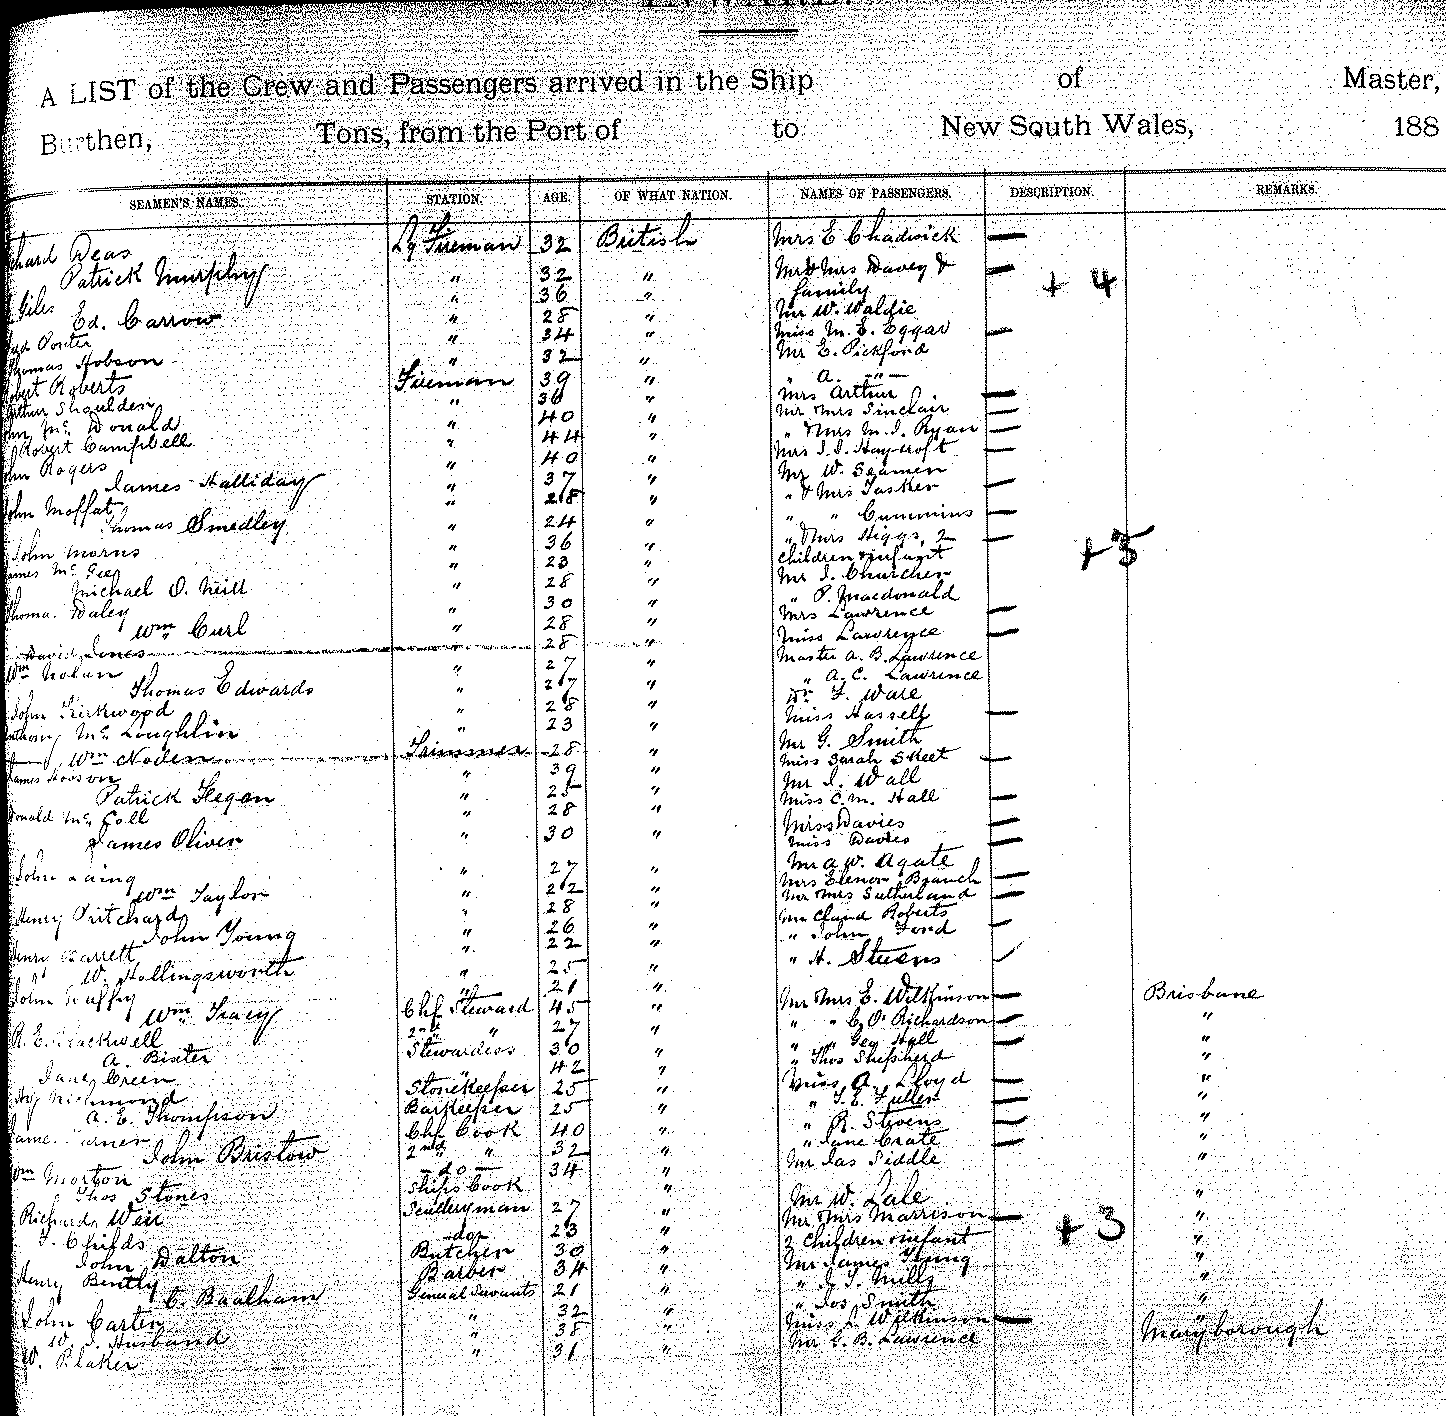 A LIST of the Crew and Passengers arrived in the Ship of Master,
Burthen, Tons, from the Port of to New South Wales, 188
SEAMEN'S NAMES. STATION. AGE. OF WHAT NATION. NAMES OF PASSENGERS. DESCRIPTION. REMARKS.
Deas Lg Fireman 32 British Mrs E Chadwick —
Patrick Murphy " 32 " Mr & Mrs Davey & —
Giles " 36 " family + 4
Ed. Carrow " 28 " Mr W. Waldie
Porter " 34 " Miss M. E. Eggar —
Thomas Hobson " 32 " Mr E. Pickford
Robert Roberts Fireman 39 " " A. —"—
Arthur Shoulden " 36 " Mrs Arthur —
John Mc Donald " 40 " Mr Mrs Sinclair —
Robert Campbell " 44 " " & Mrs M. J. Ryan —
John Rogers " 40 " Mrs J. J. Haycroft —
James Halliday " 37 " Mr W. Seamen
John Moffat " 28 " " & Mrs Tasker —
Thomas Smedley " 24 " " " Cummins —
John Morris " 36 " " & Mrs Higgs, 2 —
James Mc Gee " 23 " Children & infant + 3
Michael O. Neill " 28 " Mr J. Churcher
Thoma. Daley " 30 " " P. Macdonald
Wm Curl " 28 " Mrs Lawrence —
David Jones " 28 " Miss Lawrence —
Wm Nolan " 27 " Master A. B. Lawrence
Thomas Edwards " 27 " " A. C. Lawrence
John Kirkwood " 28 " Dr F. Ware
Anthony Mc Loughlin " 23 " Miss Hassell —
Wm Noden Trimmer 28 " Mr G. Smith
James Hobson " 39 " Miss Sarah Skeet —
Patrick Hegan " 25 " Mr J. Wall
Donald Mc Coll " 28 " Miss C. M. Hall —
James Oliver " 30 " Miss Davies —
Miss Davies —
John Laing " 27 " Mr A. W. Agate
Wm Taylor " 22 " Mrs Elenor Branch —
Henry Pritchard " 28 " Mr Mrs Sutherland —
John Young " 26 " Mr Claud Roberts
Henry Barrett " 22 " " John Ford —
W. Hollingsworth " 25 " " H. Stevens
John Duffy " 21 "
Wm Tracy Chf Steward 45 " Mr Mrs E. Wilkinson — Brisbane
R. E. Blackwell 2nd " 27 " " " C. O. Richardson — "
A. Bixter Stewardess 30 " " " Geo Hall — "
Jane Green " 42 " " Thos Shepherd "
Richmond Storekeeper 25 " Miss A. Lloyd — "
A. E. Thompson Barkeeper 25 " " T. E. Fuller — "
Turner Chf Cook 40 " " R. Stevens — "
John Bristow 2nd " 32 " " Jane Crate — "
Wm Morton — do — 34 " Mr Jas Siddle "
Thos Stones Ships Cook "
Richard Weir Sculleryman 27 " Mr W. Lale "
J. Childs do 23 " Mr Mrs Marrison — + 3 "
John Dalton Butcher 30 " 2 Children & infant "
Henry Bently Barber 34 " Mr James Young "
C. Baalham General Servants 21 " " J. J. Mills "
John Carter " 32 " " Jos Smith "
W. J. Husband " 38 " Miss L. Wilkinson — "
W. Blaker " 31 " Mr G. B. Lawrence Maryborough